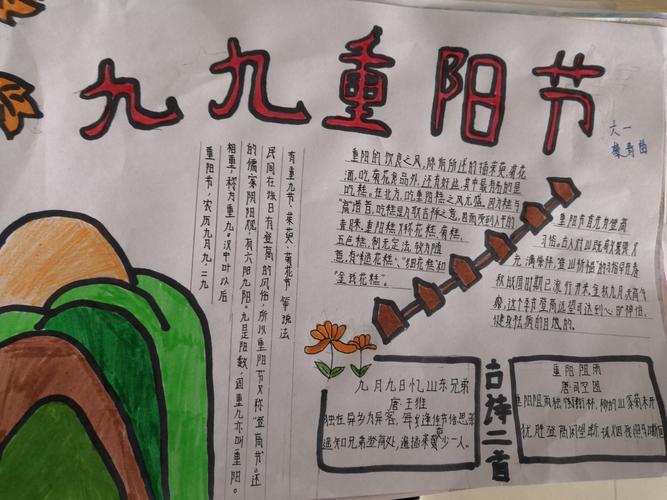 九九重阳节
六一
重阳节,农历九月九,二九
相重,称为重九。汉中叶以后
的儒家阴阳观,有六阴九阳。九是阳数,因重九亦叫重阳。
民间在该日有登高的风俗,所以重阳节又称"登高节"。还
有重九节、茱萸、菊花节等说法
重阳的饮食之风,除前所述的插茱萸、菊花
酒,吃菊花食品外,还有好些,其中最有名的是
吃糕。在北方,吃重阳糕之风尤盛。
吃糕是为取吉祥之意,因而受到人们的
青睐。重阳糕又称花糕、菊糕、
五色糕,制无定法,较为随
意,有"糙花糕"、"细花糕"和
"金钱花糕"。
重阳节首先有登高
习俗,
春
秋战国时期已流行开来,金秋九月天高气
爽,这个季节登高远望可达到心旷神怡、
健身祛病的目的。
古诗二首
九月九日忆山东兄弟
唐 王维
独在异乡为异客,每逢佳节倍思亲
遥知兄弟登高处,遍插茱萸少一人。
重阳阻雨
唐 司空图
重阳阻雨独衔杯,移得山家菊未开
犹胜登高闲望断,